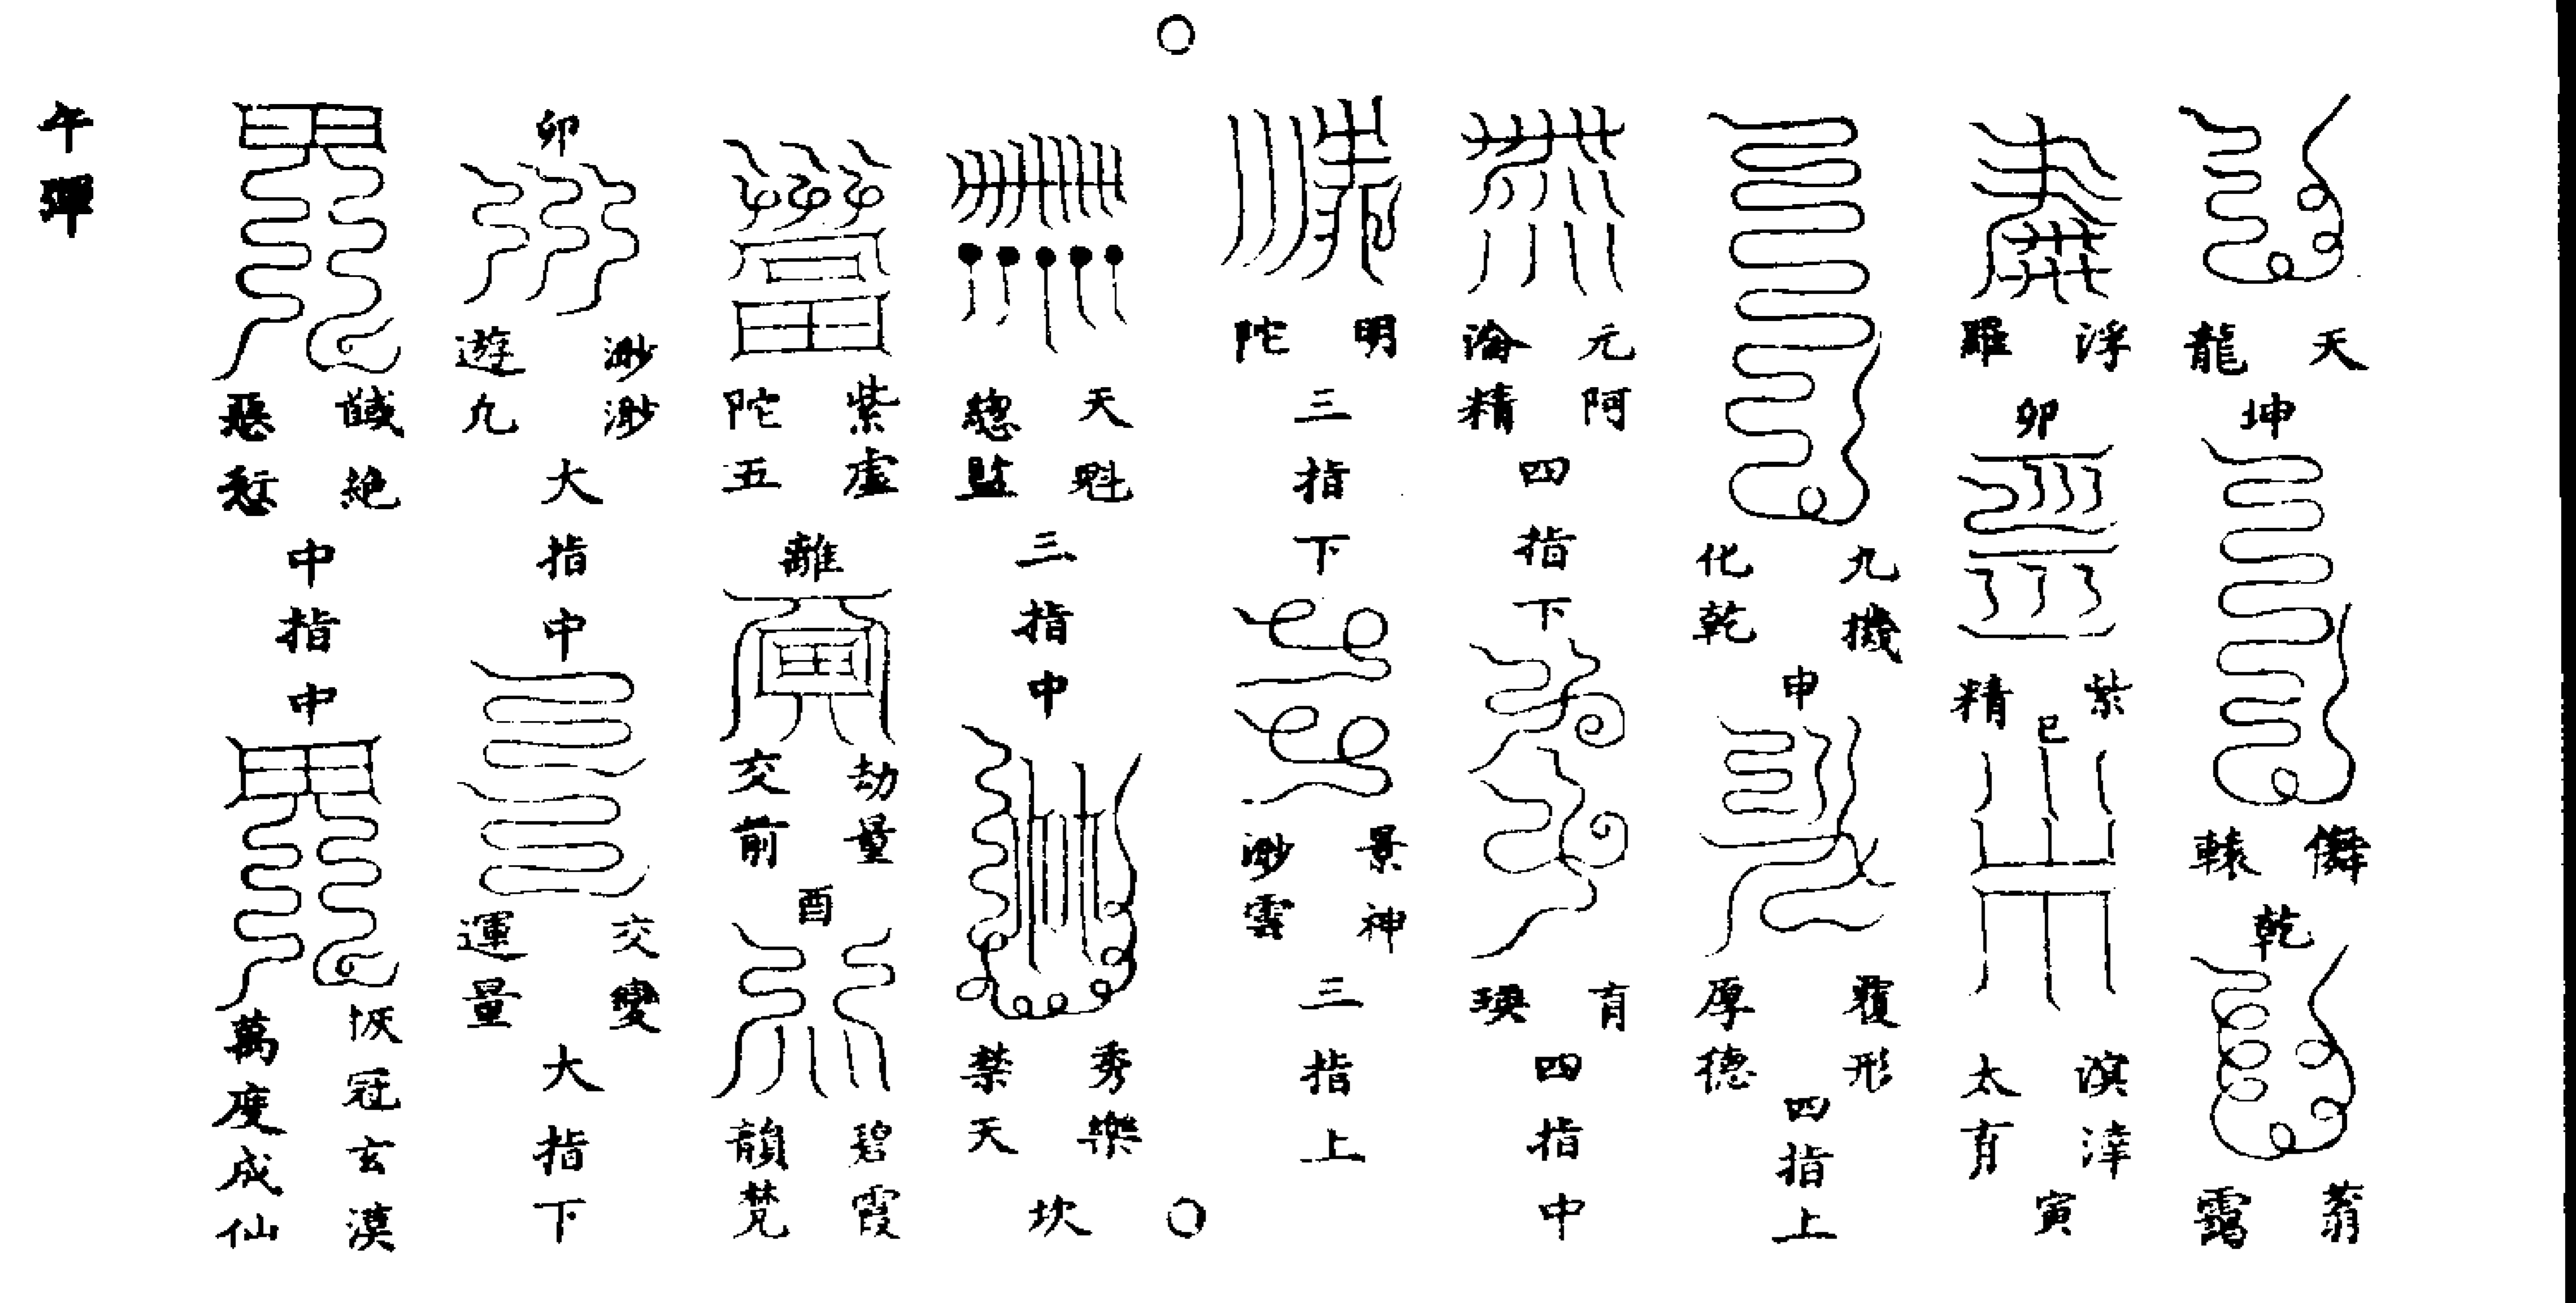 天龍
坤
轅
乾
浮羅
卯
紫精
巳
溟涬太育
寅
九機化乾
申
覆形厚德
四指上
元阿淪精
四指下
育瑛
四指中
明陀
三指下
景神渺雲
三指上
天魁總監
三指中
秀樂禁天
坎
紫虛陀五
離
劫量交前
酉
碧霞韻梵
卯
渺渺遊九
大指中
交變運量
大指下
馘絕惡愆
中指中
恢冠玄漠萬度成仙
午彈